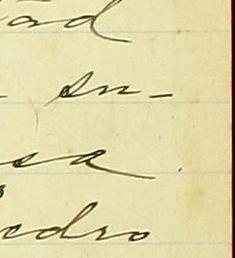 ad
su-
sa.
edro